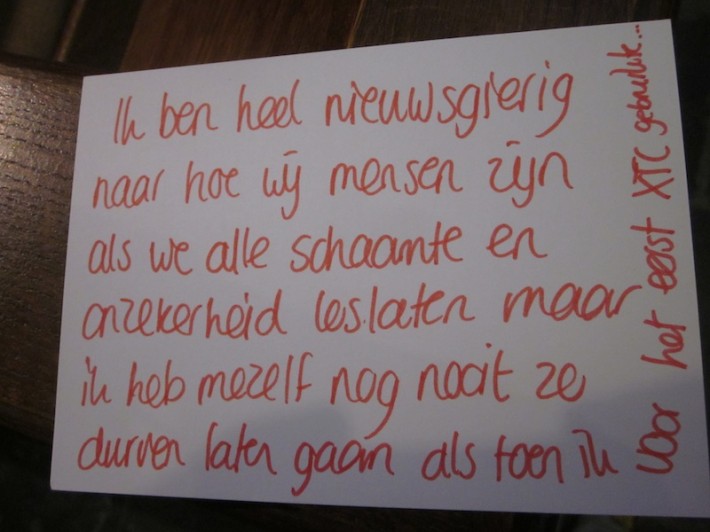 Ik ben heel nieuwsgierig
naar hoe wij mensen zijn
als we alle schaamte en
onzekerheid loslaten maar
ik heb mezelf nog nooit zo
durven laten gaan als toen ik
voor het eerst XTC gebruikte...